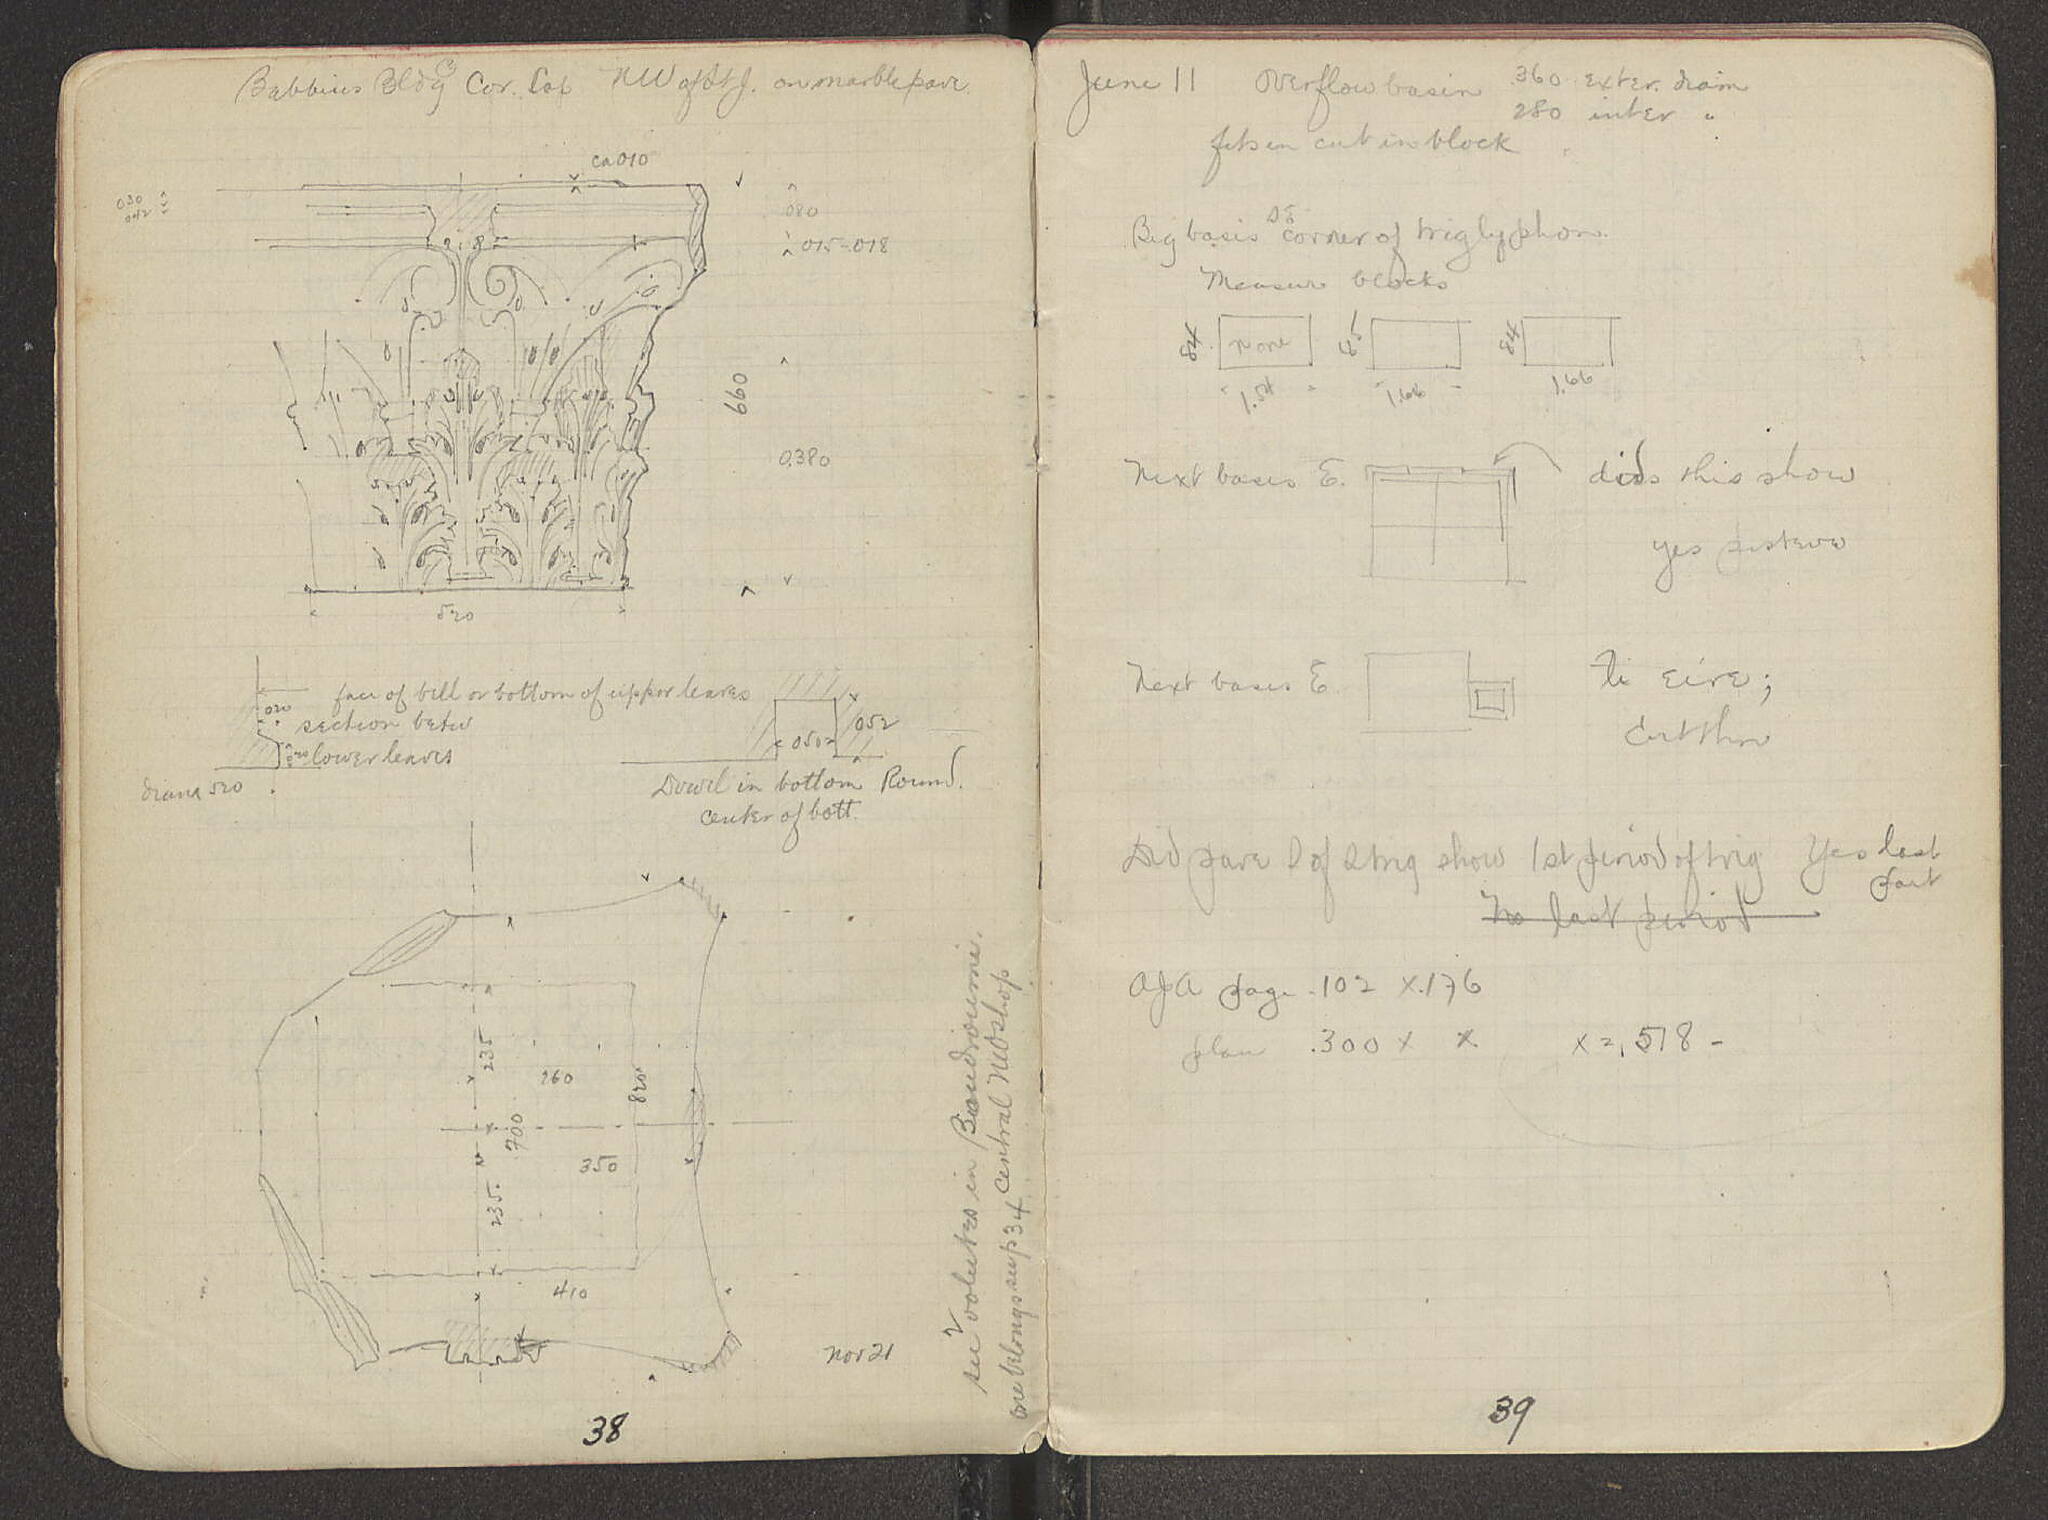 Babbius Bldg Cor. Cap NW of St J. on marble pave
ca 010
030
042
080
015-018
660
0.380
520
face of bell or bottom of upper leaves
020
section betw
lower leaves
diam 520
052
050
Dowel in bottom Round.
center of bott.
235
260
820
700
350
235
410
Nov 21
see 2 volutes in Boudroumi.
one belongs see p 34 Central NW shop
38
June 11 Overflow basin .360 exter. diam
280 inter "
fits in cut in block
Big basis SE corner of triglyphon.
Measure blocks
84 none
1.54
85
1.66
84
1.66
Next bases E. did this show
yes
Next bases E
Cut thru
Did pave S of S trig show 1st period of trig Yes last
part
No last period
AJA page .102 x .176
plan .300 x x x = .518 -
39